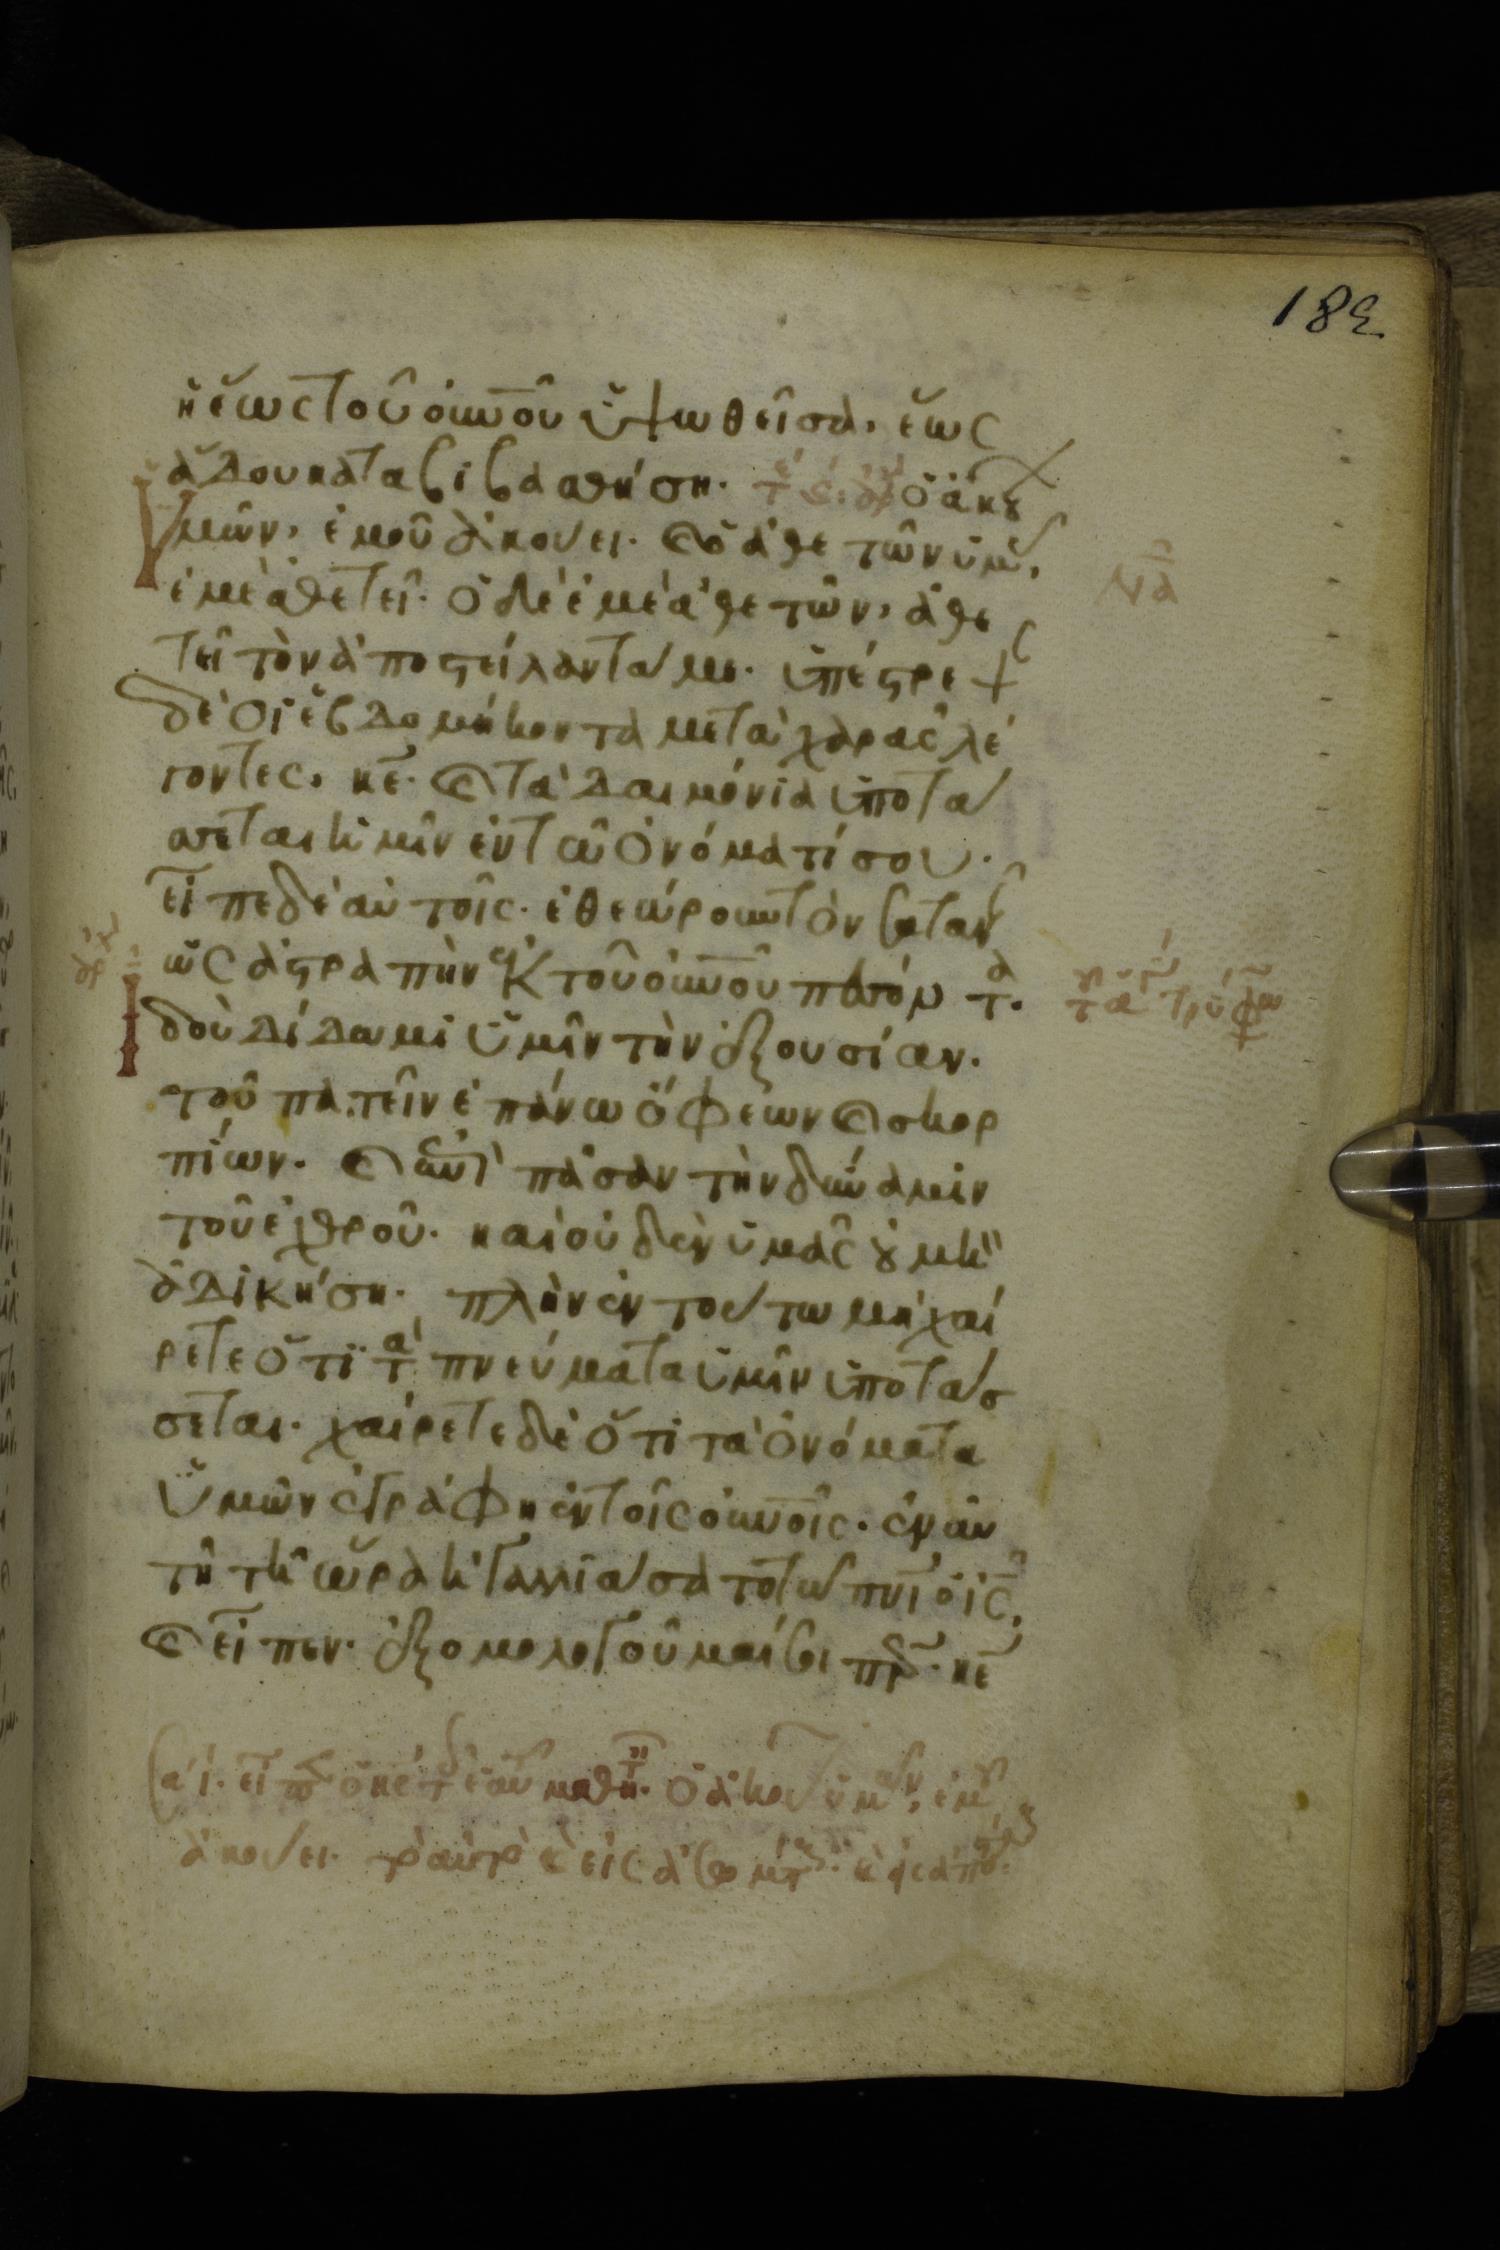 182
ἡ ἕως τοῦ οὐνοῦ ὑψωθεῖσα, ἕως
ἅδου καταβιβασθήση. ὁ ἀκού
ὑμῶν, ἐμοῦ ἀκούει. καὶ ὁ ἀθετῶν ὑμᾶς,
ἐμὲ ἀθετεῖ. ὁ δὲ ἐμὲ ἀθετῶν, ἀθε
τεῖ τὸν ἀποστείλαντά με. ὑπέστρεψ
δὲ οἱ ἑβδομήκοντα μετὰ χαρᾶς λέ
γοντες, κε. καὶ τὰ δαιμόνια ὑποτά
σεται ἡμῖν ἐν τῶ ὀνόματί σου.
εἶπε δὲ αὐτοῖς. ἐθεώρουν τὸν σαταν
ὡς ἀστραπὴν ἐκ τοῦ οὐνοῦ πεσόντα.
ἰδοὺ δίδωμι ὑμῖν τὴν ἐξουσίαν.
τοῦ πατεῖν ἐπάνω ὄφεων καὶ σκορ
πίων. καὶ ἐπὶ πᾶσαν τὴν δύναμιν
τοῦ ἐχθροῦ. καὶ οὐδὲν ὑμᾶς οὐ μὴ
ἀδικήση. πλὴν ἐν τούτω μὴ χαί
ρετε ὅτι τὰ πνεύματα ὑμῖν ὑποτάσ
σεται. χαίρετε δὲ ὅτι τὰ ὀνόματα
ὑμῶν ἐγράφη ἐν τοῖς οὐνοῖς. ἐν αὐ
τῆ τῆ ὥρα ἠγαλλιάσατο τῶ πνι ὁ ις,
καὶ εἶπεν. ἐξομολογοῦμαί σοι περ. κε
εἶπ ὁ κς τ ἑαυ μαθητ. ὁ ἀκού ὑμῶν, ἐμοῦ
ἀκούει.